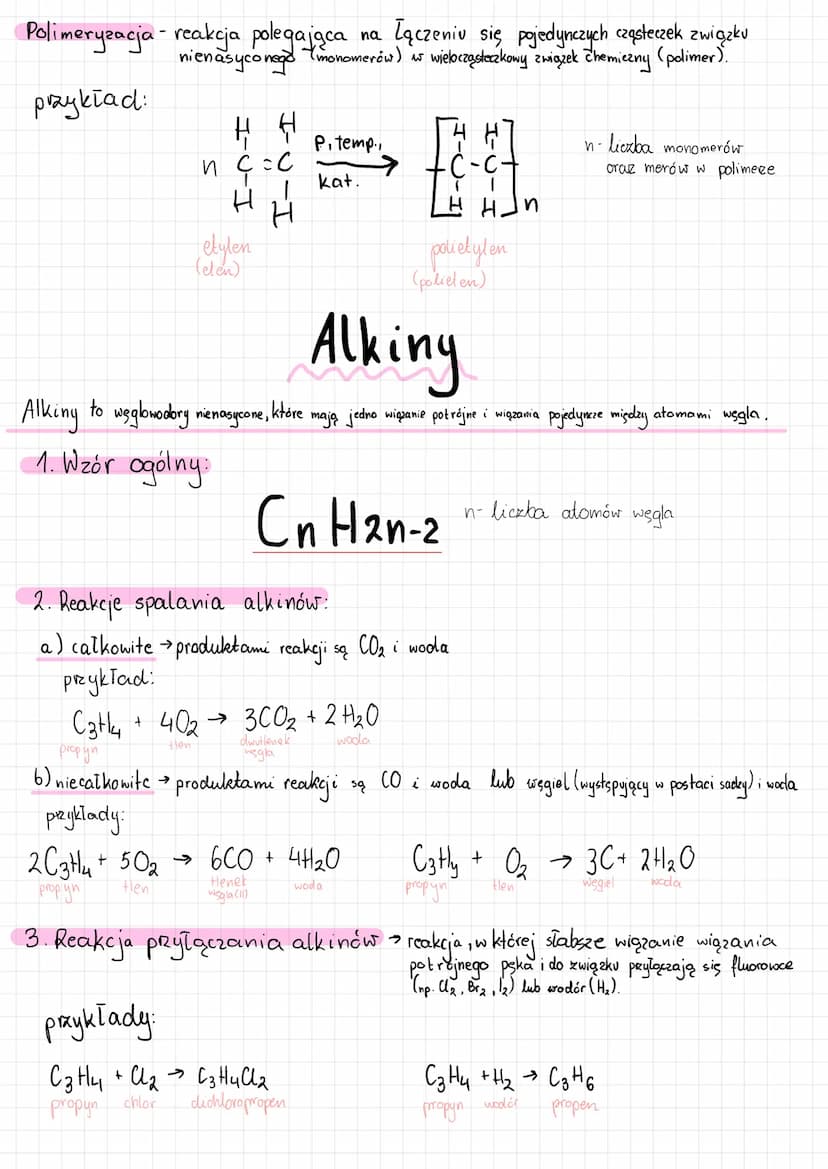 Polimeryzacja - reakcja polegająca na łączeniu się pojedynczych cząsteczek związku
nienasyconego (monomerów) w wielocząsteczkowy związek chemiczny (polimer).
przykład:
H H
n C=C
H H
P, temp.,
kat.
H H
C-C
H H n
n- liczba monomerów
oraz merów w polimeze
etylen
(eten)
polietylen
(polieten)
Alkiny
Alkiny to węglowodory nienasycone, które mają jedno wiązanie potrójne i wiązania pojedyncze między atomami węgla.
1. Wzór ogólny:
CnH2n-2
n- liczba atomów węgla
2. Reakcje spalania alkinów:
a) całkowite → produktami reakcji są CO2 i woda
przykład:
C3H4 + 4O2 → 3CO2 + 2H2O
propyn tlen dwutlenek węgla woda
b) niecałkowite → produktami reakcji są CO i woda lub węgiel (występujący w postaci sadzy) i woda
przykłady:
2C3H4 + 5O2 → 6CO + 4H2O
propyn tlen tlenek węgla(II) woda
C3H4 + O2 → 3C + 2H2O
propyn tlen węgiel woda
3. Reakcja przyłączania alkinów → reakcja, w której słabsze wiązanie wiązania
potrójnego pęka i do związku przyłączają się fluorowce
(np. Cl2, Br2, I2) lub wodór (H2).
przykłady:
C3H4 + Cl2 → C3H4Cl2
propyn chlor dichloropropen
C3H4 + H2 → C3H6
propyn wodór propen